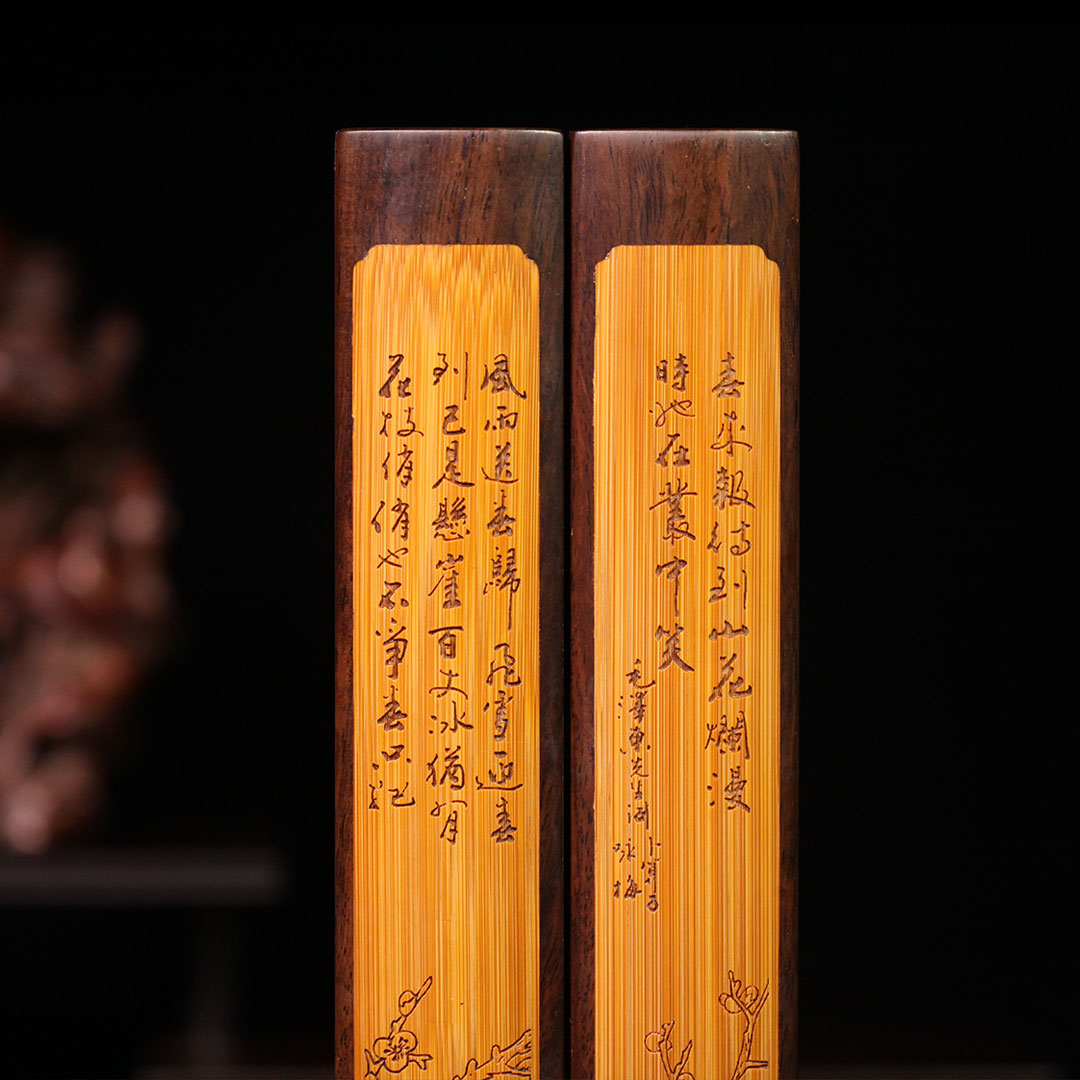 風雨送春歸 飛雪迎春
到已是懸崖百丈冰猶有
花枝俏俏也不爭春只把
春來報待到山花爛漫
時她在叢中笑
毛澤東先生詞 卜算子
咏梅